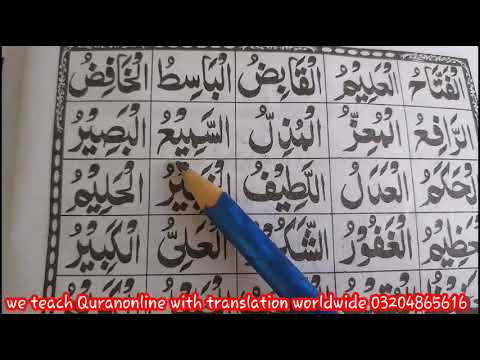 الْفَتَّاحُ الْعَلِيْمُ الْقَابِضُ الْبَاسِطُ الْخَافِضُ
الرَّافِعُ الْمُعِزُّ الْمُذِلُّ السَّمِيْعُ الْبَصِيْرُ
الْحَكَمُ الْعَدَلُ اللَّطِيْفُ الْحَلِيْمُ
الْغَفُوْرُ الْعَلِىُّ الْكَبِيْرُ
we teach Quranonline with translation worldwide 03204865616